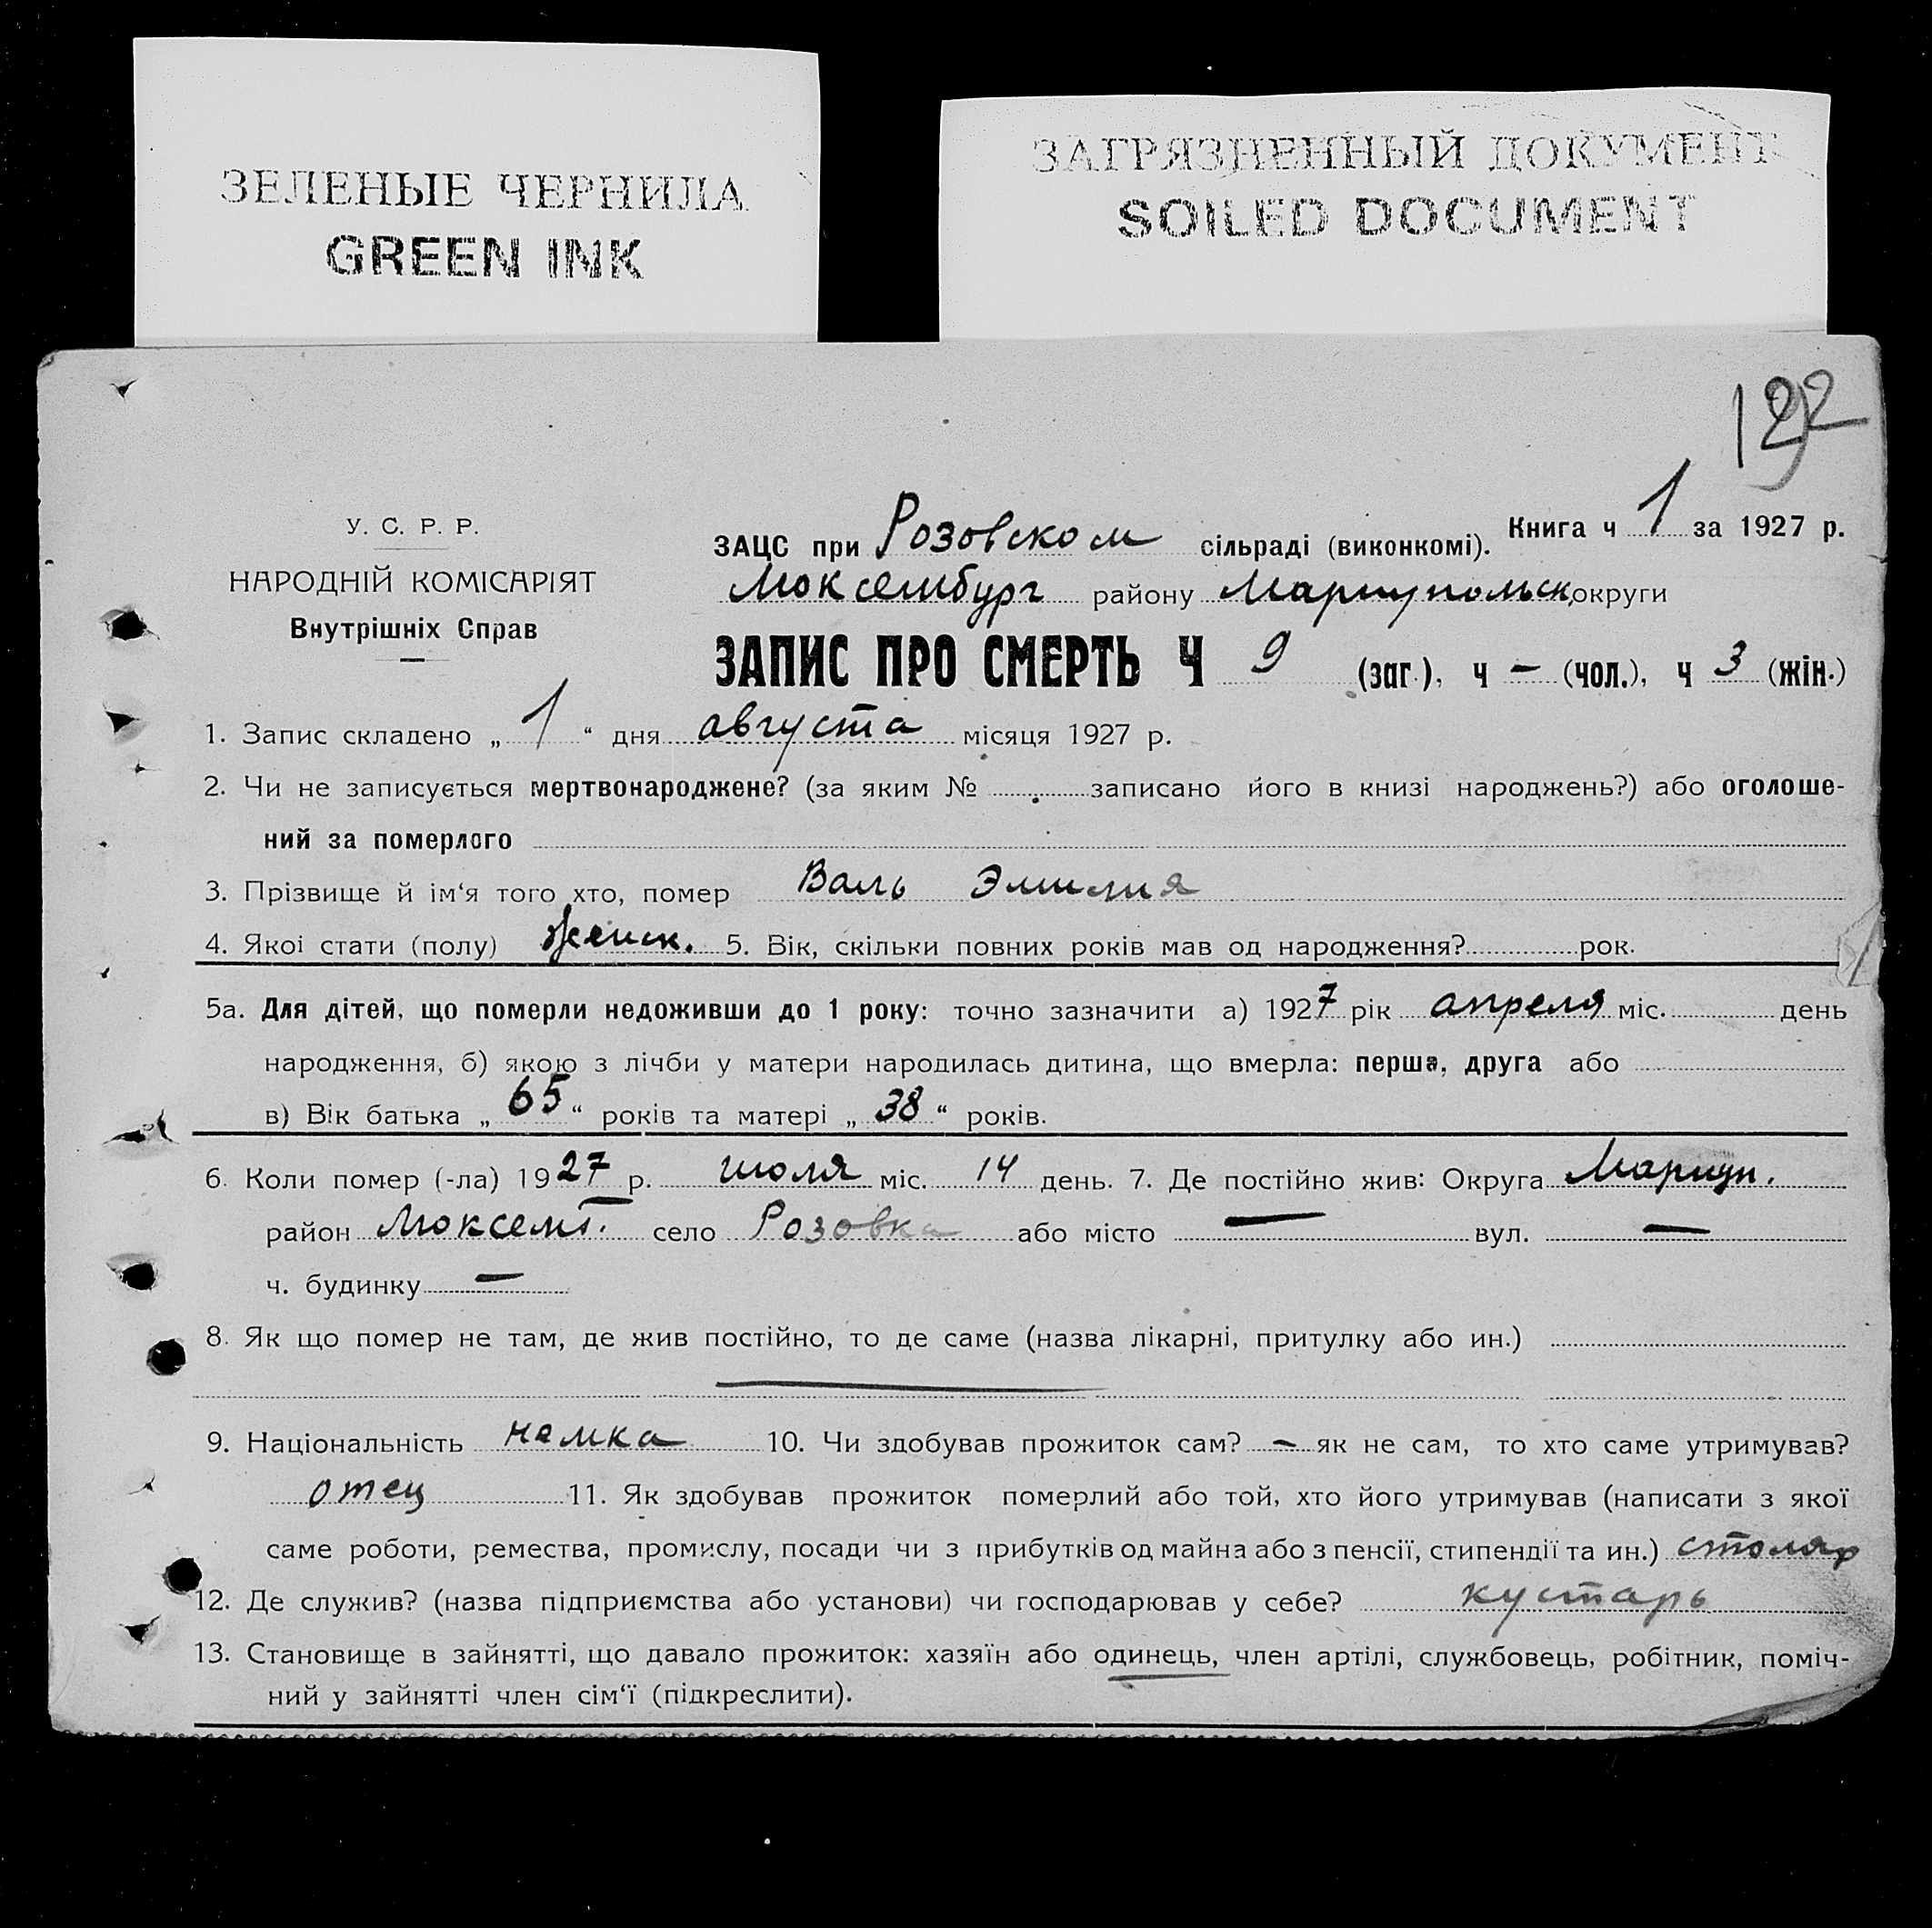 ЗЕЛЕНЫЕ ЧЕРНИЛА
GREEN INK
ЗАГРЯЗНЕННЫЙ ДОКУМЕНТ
SOILED DOCUMENT
122
У. С. Р. Р.
НАРОДНІЙ КОМІСАРІЯТ
Внутрішніх Справ
Книга ч 1 за 1927 р.
ЗАЦС при Розовском сільраді (виконкомі).
Моксембург району Мариупольск округи
ЗАПИС ПРО СМЕРТЬ Ч 9 (заг.), ч — (чол.), ч 3 (жін.)
1. Запис складено „ 1 “ дня августа місяця 1927 р.
2. Чи не записується мертвонароджене? (за яким № записано його в книзі народжень?) або оголоше-
ний за померлого
3. Прізвище й ім‘я того хто, помер Валь Эмилия
4. Якої стати (полу) женск. 5. Вік, скільки повних років мав од народження? рок.
5а. Для дітей, що померли недоживши до 1 року: точно зазначити а) 1927 рік апреля міс. день
народження, б) якою з лічби у матери народилась дитина, що вмерла: перша, друга або
в) Вік батька „ 65 “ років та матері „ 38 “ років.
6. Коли помер (-ла) 1927 р. июля міс. 14 день. 7. Де постійно жив: Округа Мариуп.
район Моксемб. село Розовка або місто — вул. —
ч. будинку —
8. Як що помер не там, де жив постійно, то де саме (назва лікарні, притулку або ин.)
9. Національність немка 10. Чи здобував прожиток сам? — як не сам, то хто саме утримував?
отец 11. Як здобував прожиток померлий або той, хто його утримував (написати з якої
саме роботи, ремества, промислу, посади чи з прибутків од майна або з пенсії, стипендії та ин.) столяр
12. Де служив? (назва підприємства або установи) чи господарював у себе? кустарь
13. Становище в зайнятті, що давало прожиток: хазяїн або одинець, член артілі, службовець, робітник, поміч-
ний у зайнятті член сім‘ї (підкреслити).